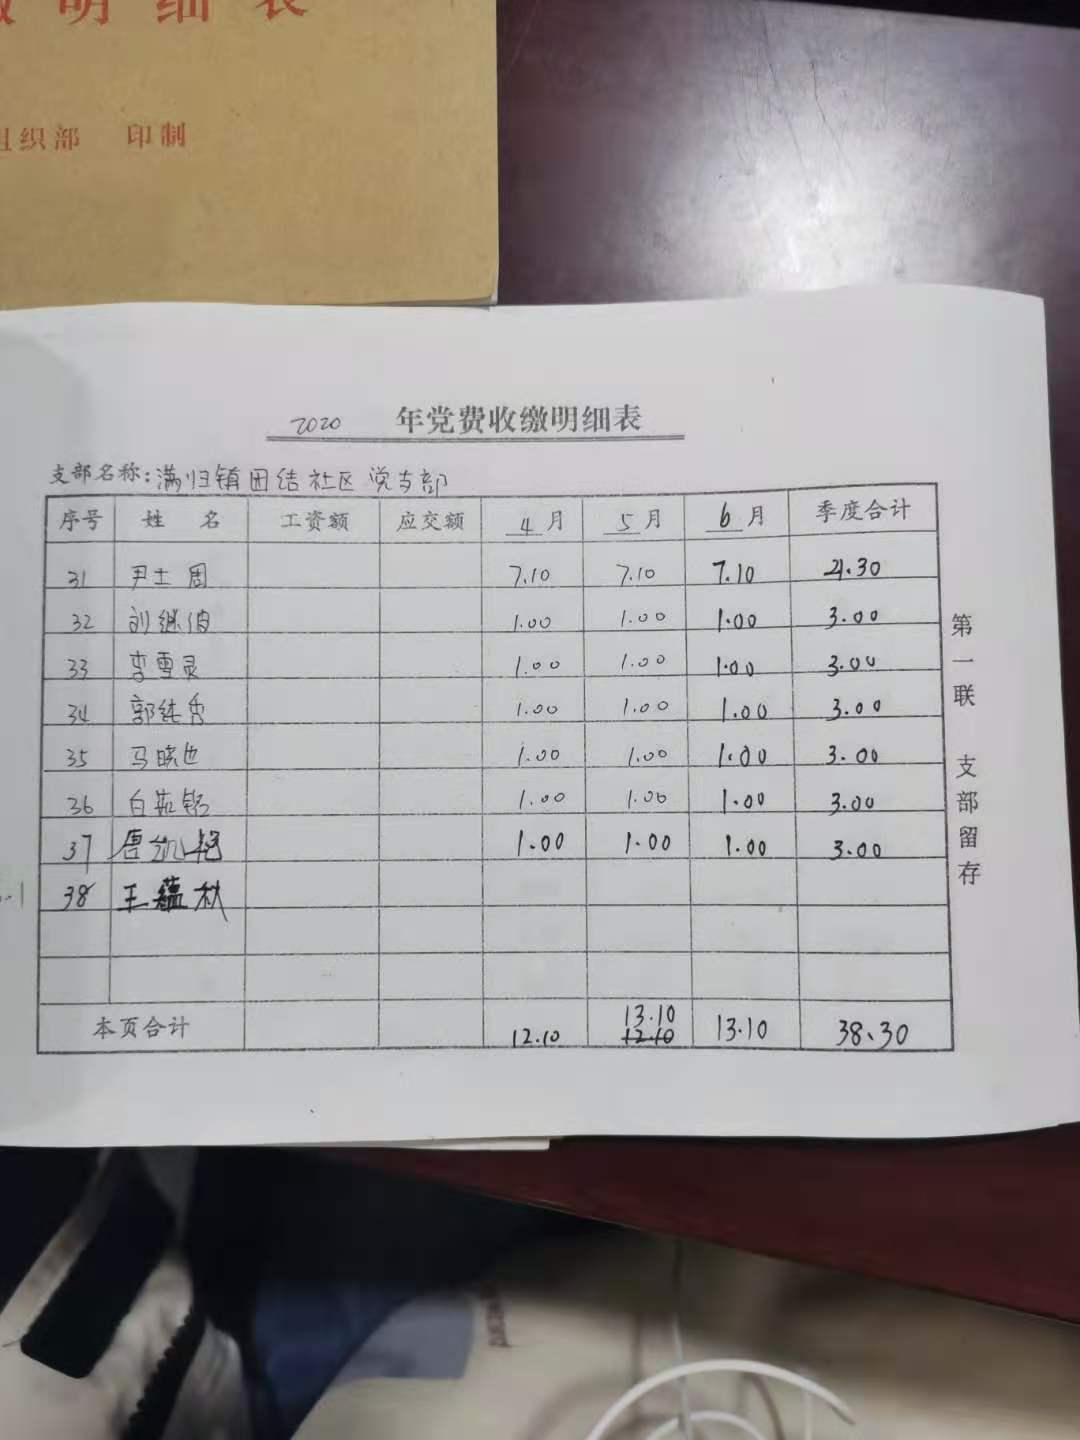 明细表
组织部 印制
2020 年党费收缴明细表
支部名称:满归镇团结社区党支部
序号 姓 名 工资额 应交额 4月 5月 6月 季度合计
31 尹士周 7.10 7.10 7.10 21.30
32 刘继伯 1.00 1.00 1.00 3.00
33 李雪灵 1.00 1.00 1.00 3.00
34 郭纯秀 1.00 1.00 1.00 3.00
35 马晓也 1.00 1.00 1.00 3.00
36 白茹铭 1.00 1.00 1.00 3.00
37 唐凯艳 1.00 1.00 1.00 3.00
38 王蕴秋
13.10
本页合计 12.10 12.10 13.10 38.30
第一联 支部留存